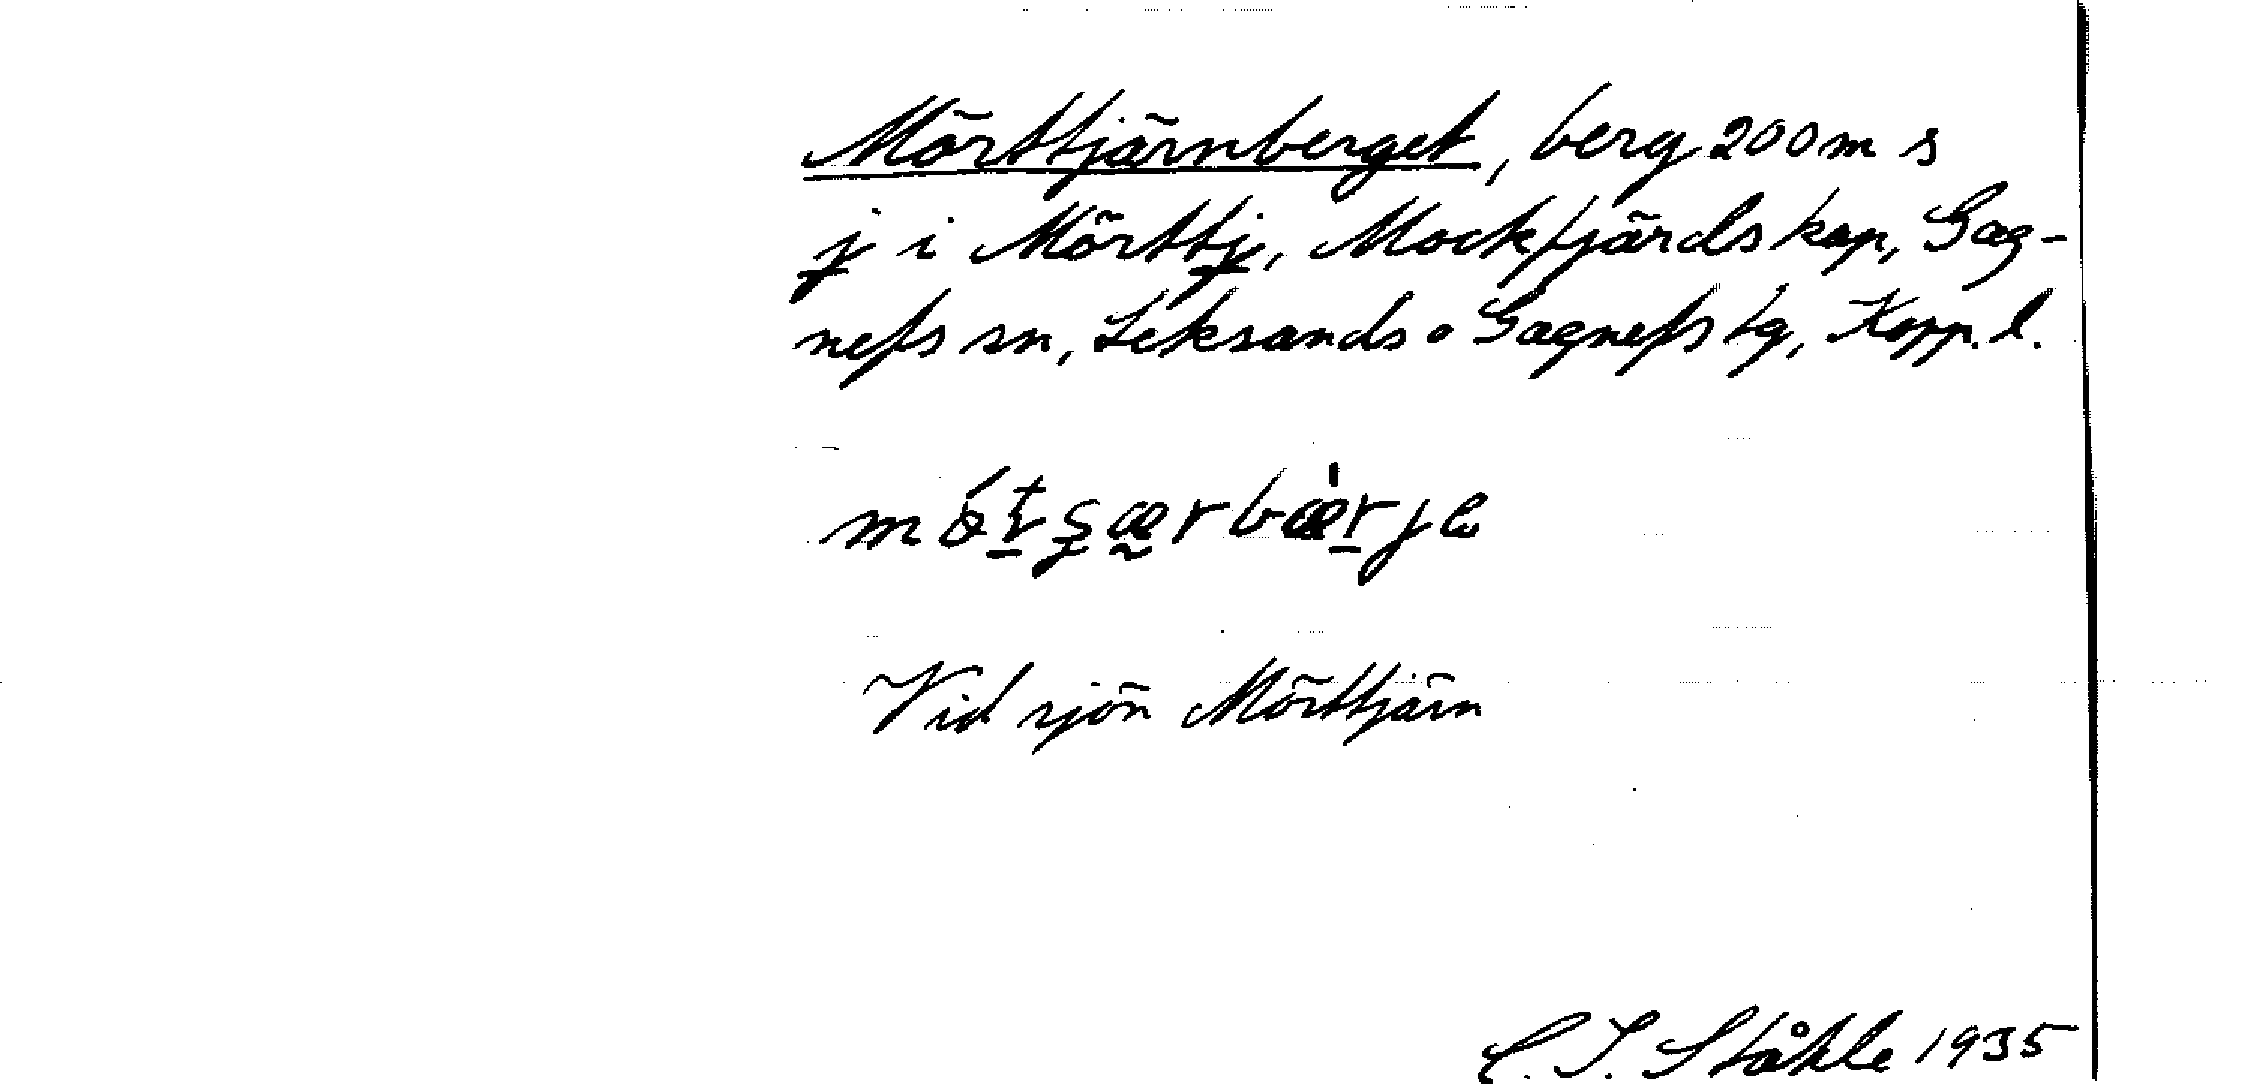 Mörttjärnberget, berg 200 m s
j i Mörttj, Mockfjärds kap, Gag-
nefs sn, Leksands o Gagnefs tg, Kopp. l.
Vid sjön Mörttjärn
C. I. Ståhle 1935